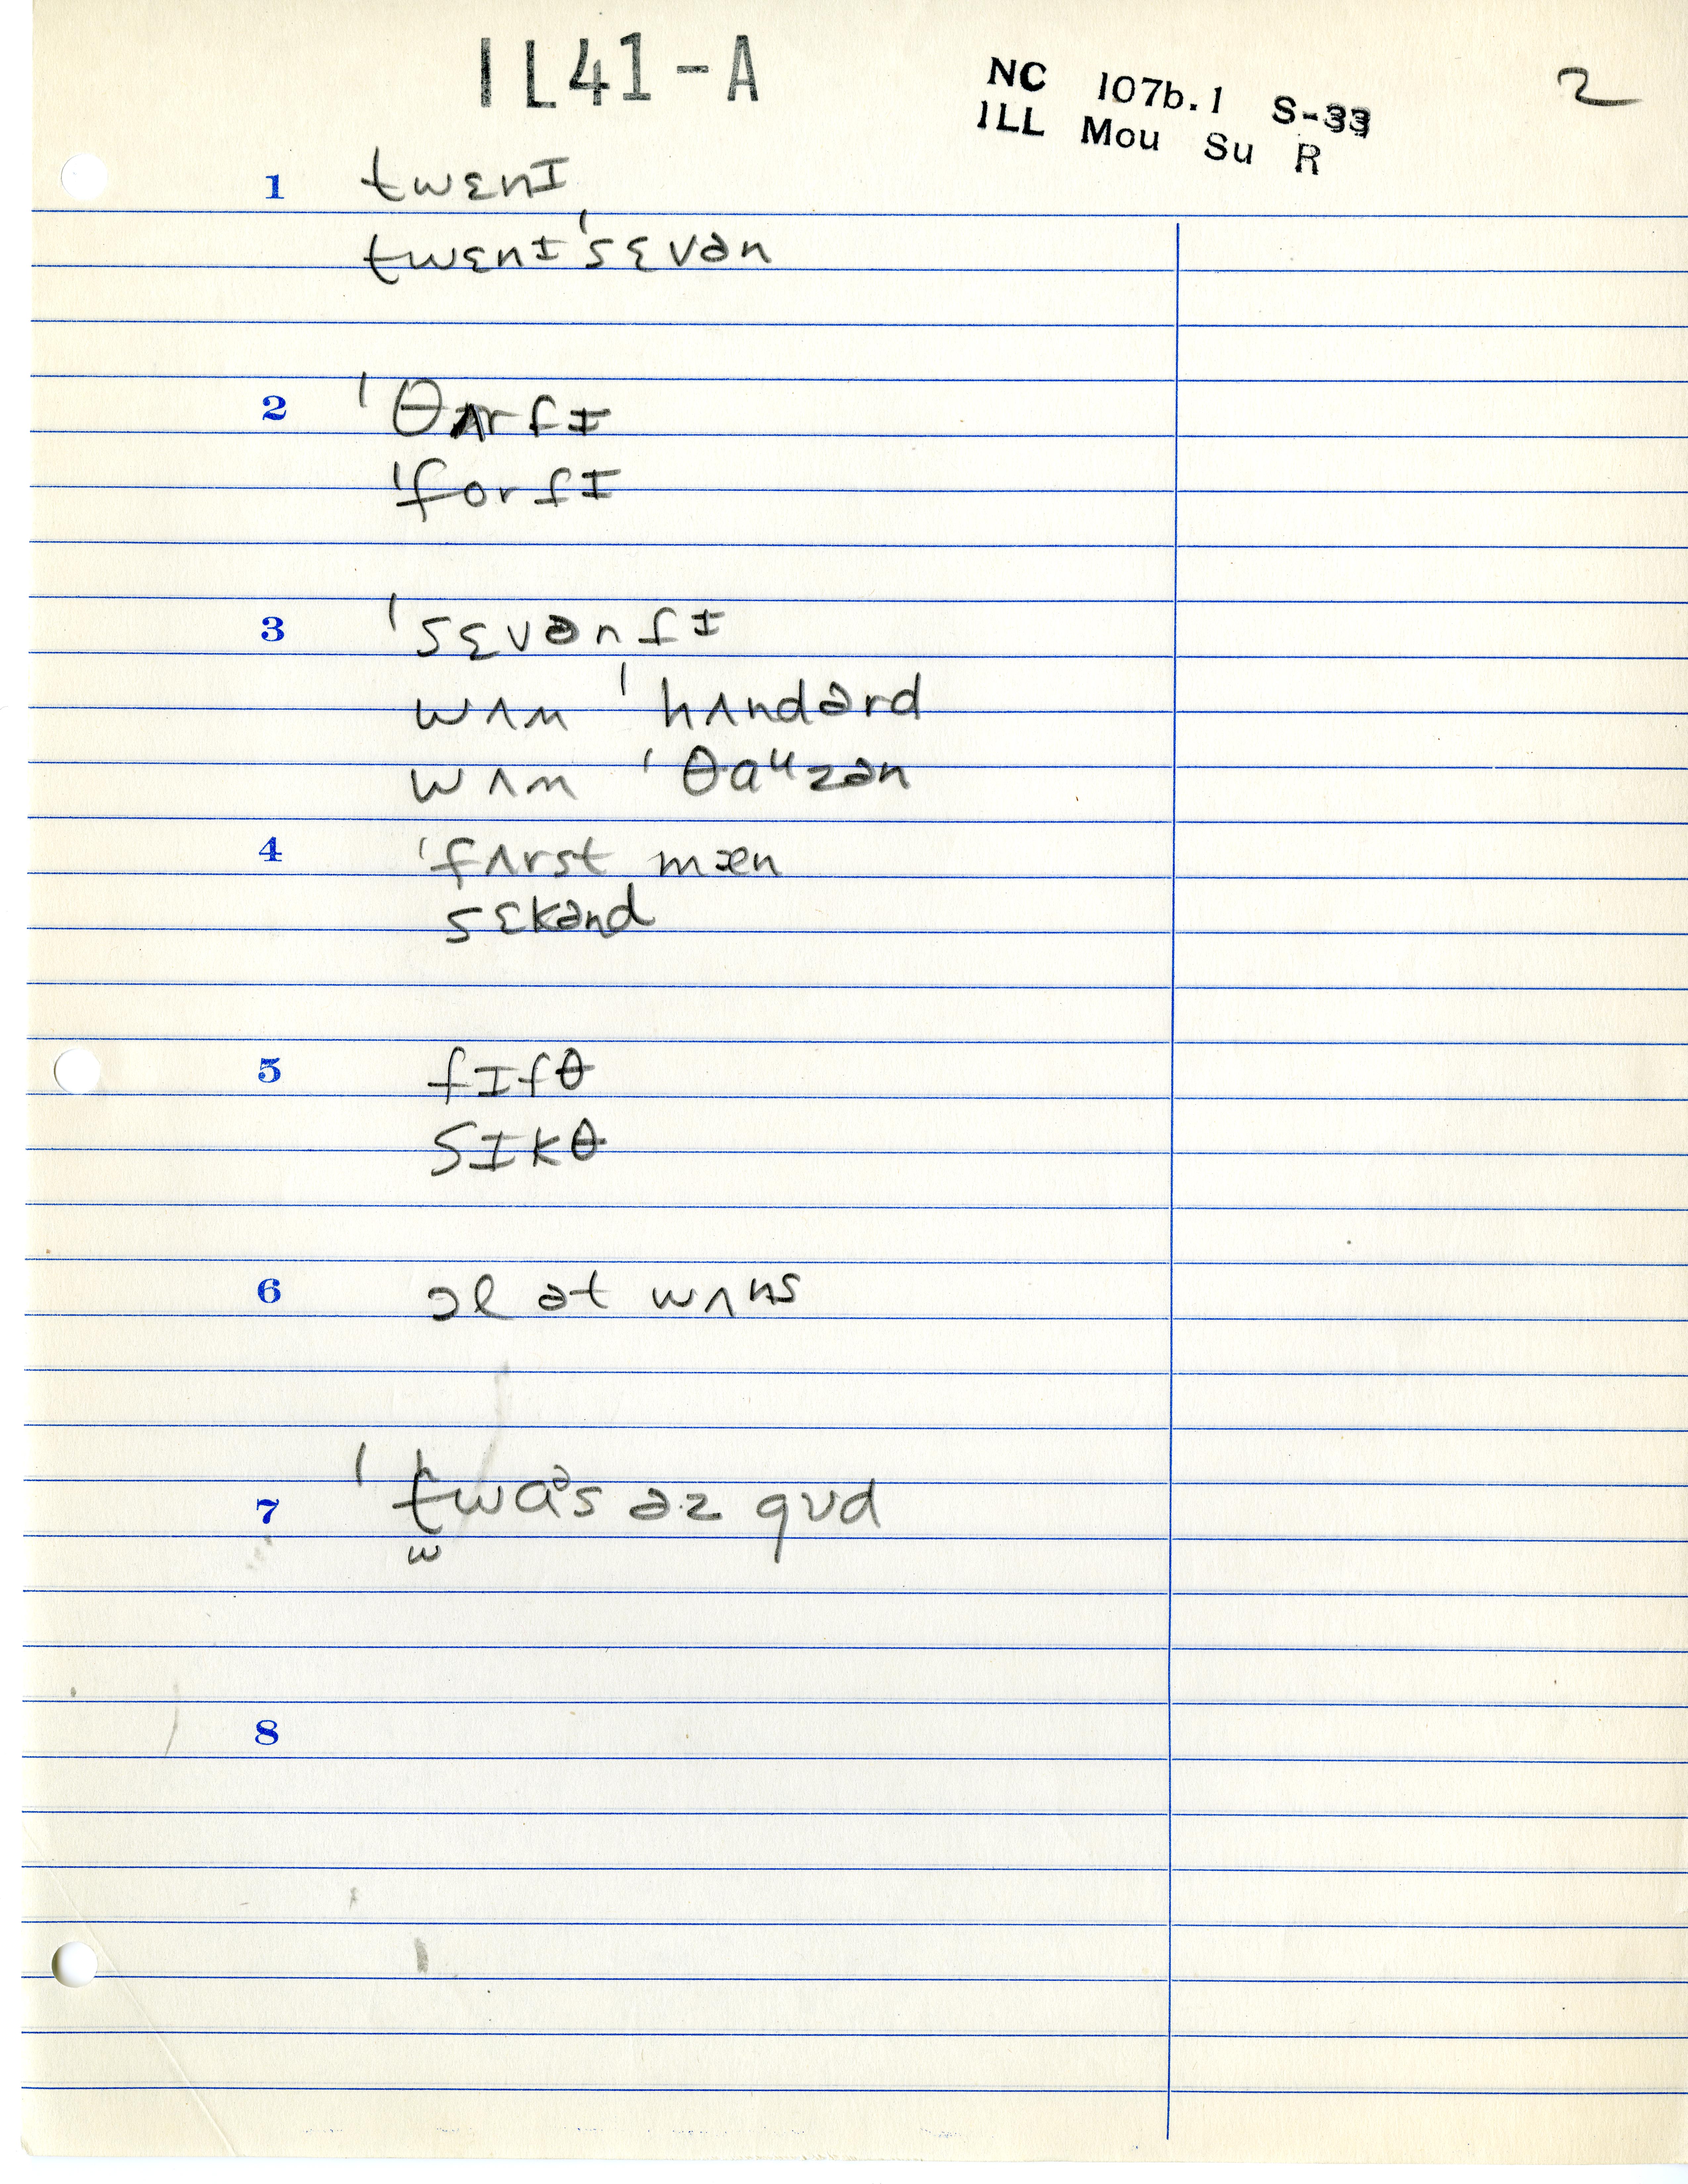 IL41-A
NC 107b.1 S-33
ILL Mou Su R
2
1 twɛnɪ
twɛnɪˈsɛvən
2 ˈθʌrtɪ
ˈfortɪ
3 ˈsɛvəntɪ
wʌn ˈhʌndərd
wʌn ˈθaᶸzən
4 ˈfʌrst mæn
sɛkənd
5 fɪfθ
sɪkθ
6 ɔl ət wʌns
7 ˈtwaᵊs əz gʊd
8